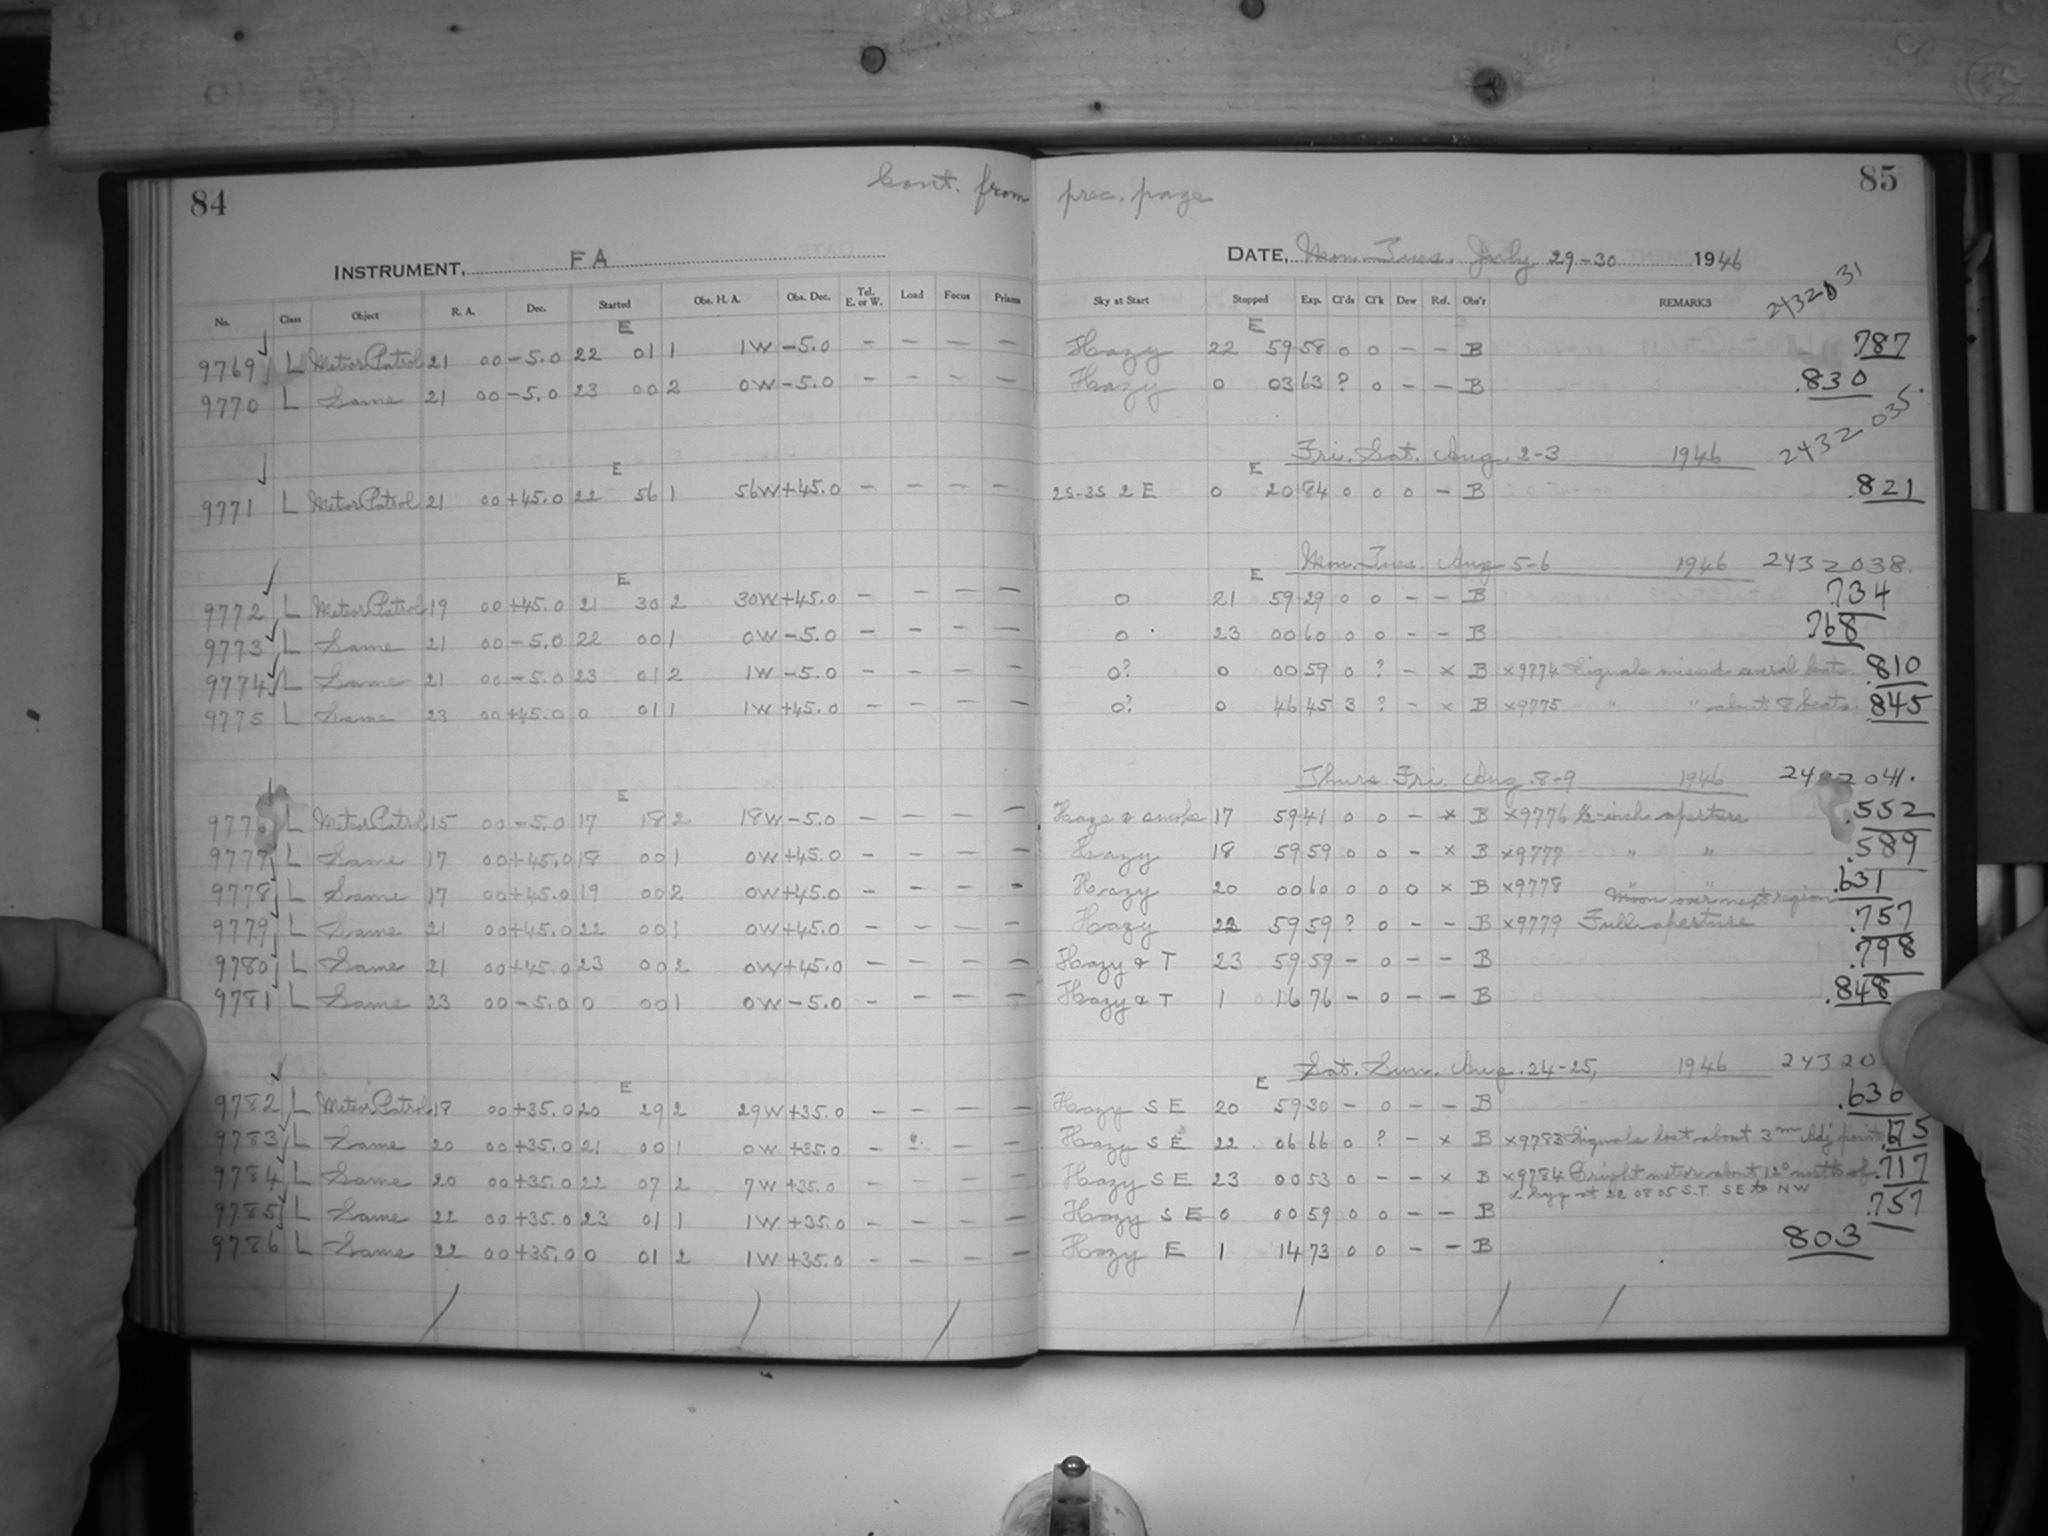 84
Cont. from prec. page
85
INSTRUMENT, F A
DATE, Mon. Tues. July 29-30 1946
2432031
No. Class Object R. A. Dec. Started Obs. H. A. Obs. Dec. Tel. E. or W. Load Focus Prisms Sky at Start Stopped Exp. Cl'ds Cl'k Dew Ref. Obs'r REMARKS
E E
9769 L Meteor Patrol 21 00 -5.0 22 01 1 1W -5.0 - - - - Hazy 22 59 58 0 0 - - B .787
9770 L Same 21 00 -5.0 23 00 2 0W -5.0 - - - - Hazy 0 03 63 ? 0 - - B .830
Fri. Sat. Aug. 2-3 1946 2432035.
E E
9771 L Meteor Patrol 21 00 +45.0 22 56 1 56W +45.0 - - - - 25-35 2 E 0 20 84 0 0 0 - B .821
Mon. Tues. Aug 5-6 1946 2432038.
E E
9772 L Meteor Patrol 19 00 +45.0 21 30 2 30W +45.0 - - - - 0 21 59 29 0 0 - - B .734
9773 L Same 21 00 -5.0 22 00 1 0W -5.0 - - - - 0 23 00 60 0 0 - - B .768
9774 L Same 21 00 -5.0 23 01 2 1W -5.0 - - - - 0? 0 00 59 0 ? - x B x9774 Signals missed several beats. .810
9775 L Same 23 00 +45.0 0 01 1 1W +45.0 - - - - 0? 0 46 45 3 ? - x B x9775 " " about 8 beats. .845
Thurs. Fri. Aug. 8-9 1946 2432041.
E
9776 L Meteor Patrol 15 00 -5.0 17 18 2 18W -5.0 - - - - Haze & smoke 17 59 41 0 0 - x B x9776 ½-inch aperture .552
9777 L Same 17 00 +45.0 18 00 1 0W +45.0 - - - - Hazy 18 59 59 0 0 - x B x9777 " " .589
9778 L Same 17 00 +45.0 19 00 2 0W +45.0 - - - - Hazy 20 00 60 0 0 0 x B x9778 " " .631
Moon over next region
9779 L Same 21 00 +45.0 22 00 1 0W +45.0 - - - - Hazy 22 59 59 ? 0 - - B x9779 Full aperture .757
9780 L Same 21 00 +45.0 23 00 2 0W +45.0 - - - - Hazy & T 23 59 59 - 0 - - B .798
9781 L Same 23 00 -5.0 0 00 1 0W -5.0 - - - - Hazy & T 1 16 76 - 0 - - B .848
Sat. Sun. Aug. 24-25, 1946 24320
E E
9782 L Meteor Patrol 18 00 +35.0 20 29 2 29W +35.0 - - - - Hazy S E 20 59 30 - 0 - - B .636
9783 L Same 20 00 +35.0 21 00 1 0W +35.0 - - - Hazy S E 22 06 66 0 ? - x B x9783 Signals lost about 3m Adj point .675
9784 L Same 20 00 +35.0 22 07 2 7W +35.0 - - - - Hazy S E 23 00 53 0 - - x B x9784 Bright meteor about 12° north of .717
α Cyg at 22 08 05 S.T. SE to NW
9785 L Same 22 00 +35.0 23 01 1 1W +35.0 - - - - Hazy S E 0 00 59 0 0 - - B .757
9786 L Same 22 00 +35.0 0 01 2 1W +35.0 - - - - Hazy E 1 14 73 0 0 - - B .803